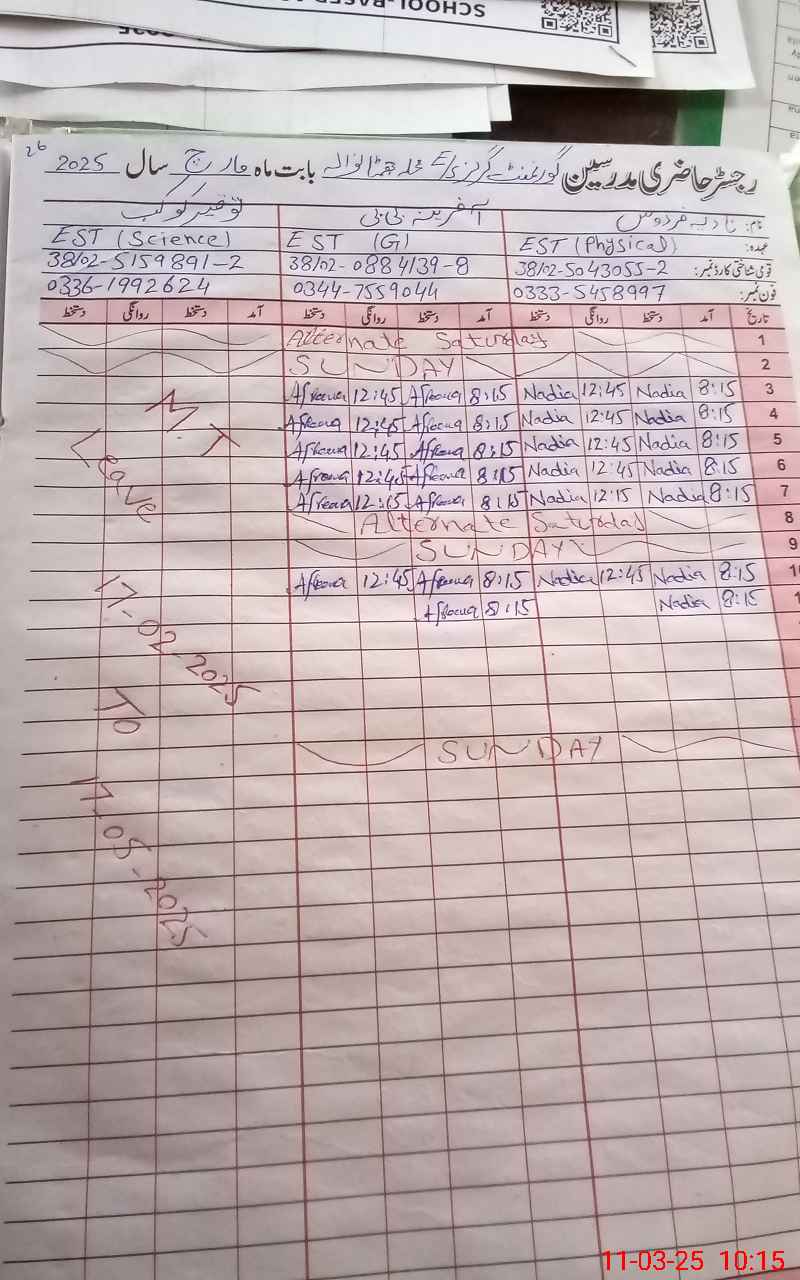 SCHOOL-BASED
26
رجسٹر حاضری مدرسین گورنمنٹ گرلز E/S محلہ بابت ماہ مارچ سال 2025
نام: نادیہ فردوس آفرینہ بی بی توقیر کوکب
عہدہ: EST (Physical) EST (G) EST (Science)
قومی شناختی کارڈ نمبر: 38102-5043055-2 38102-0884139-8 38102-5159891-2
فون نمبر: 0333-5458997 0344-7559044 0336-1992624
تاریخ آمد دستخط روانگی دستخط آمد دستخط روانگی دستخط آمد دستخط روانگی دستخط
1 Alternate Saturday
2 SUNDAY
3 8:15 Nadia 12:45 Nadia 8:15 Afreena 12:45 Afreena
4 8:15 Nadia 12:45 Nadia 8:15 Afreena 12:45 Afreena
5 8:15 Nadia 12:45 Nadia 8:15 Afreena 12:45 Afreena
6 8:15 Nadia 12:45 Nadia 8:15 Afreena 12:45 Afreena
7 8:15 Nadia 12:15 Nadia 8:15 Afreena 12:15 Afreena
8 Alternate Saturday
9 SUNDAY
10 8:15 Nadia 12:45 Nadia 8:15 Afreena 12:45 Afreena
8:15 Nadia 8:15 Afreena
SUNDAY
Leave
17-02-2025
TO
17-05-2025
11-03-25 10:15